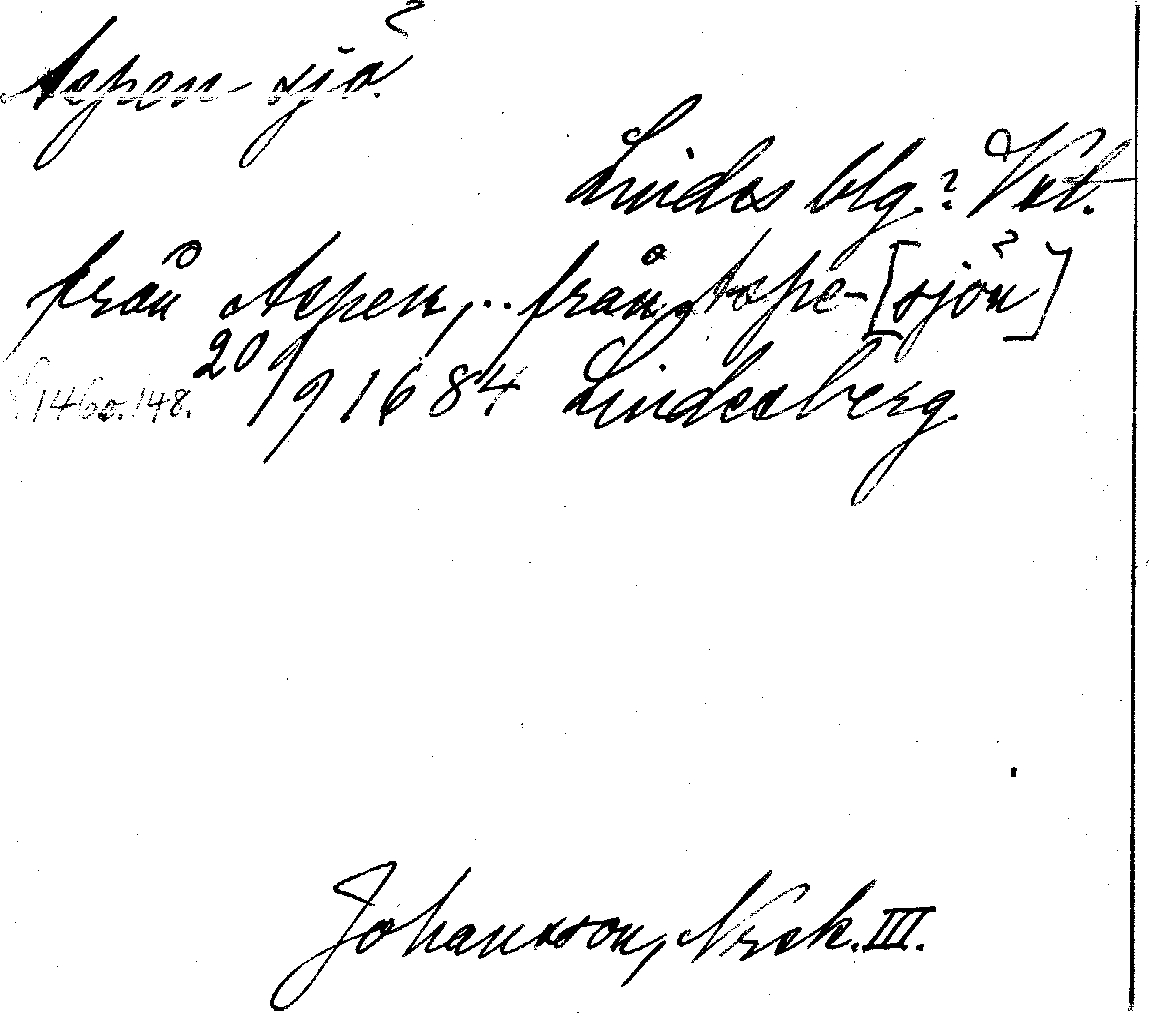 Aspen sjö?
Lindes blg.? Vstm.
från Aspen, .. från Aspe-[sjön?]
1460.148. 20/9 1684 Lindesberg.
Johansson, Nrsk. III.